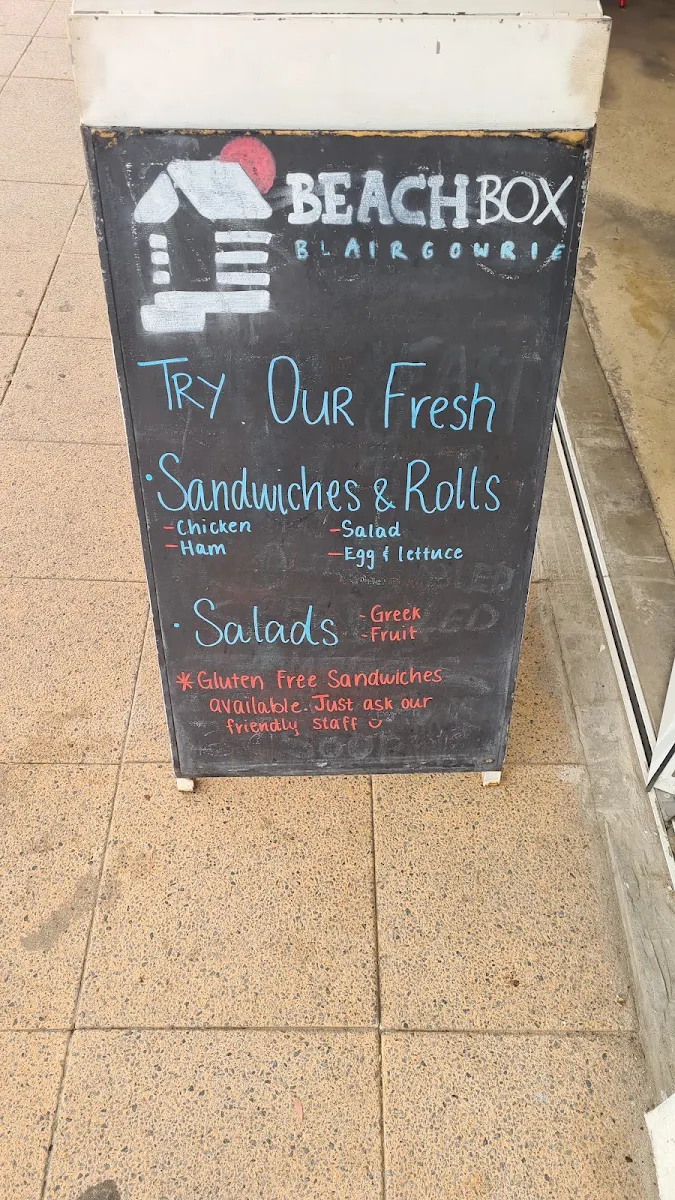 BEACH BOX
BLAIRGOWRIE
TRY OUR Fresh
• Sandwiches & Rolls
- Chicken
- Salad
- Ham
- Egg & lettuce
• Salads
- Greek
- Fruit
* Gluten Free Sandwiches
available. Just ask our
friendly staff ☺